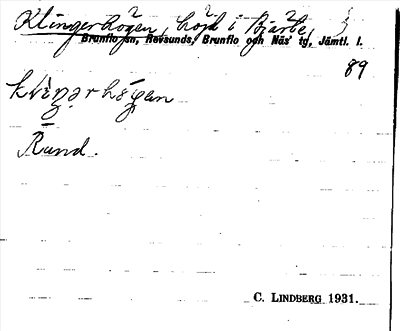 Klingerhögen, höjd i Bjärte,
Brunflo sn, Revsunds, Brunflo och Näs' tg, Jämtl. l.
89
Rund.
C. LINDBERG 1931.